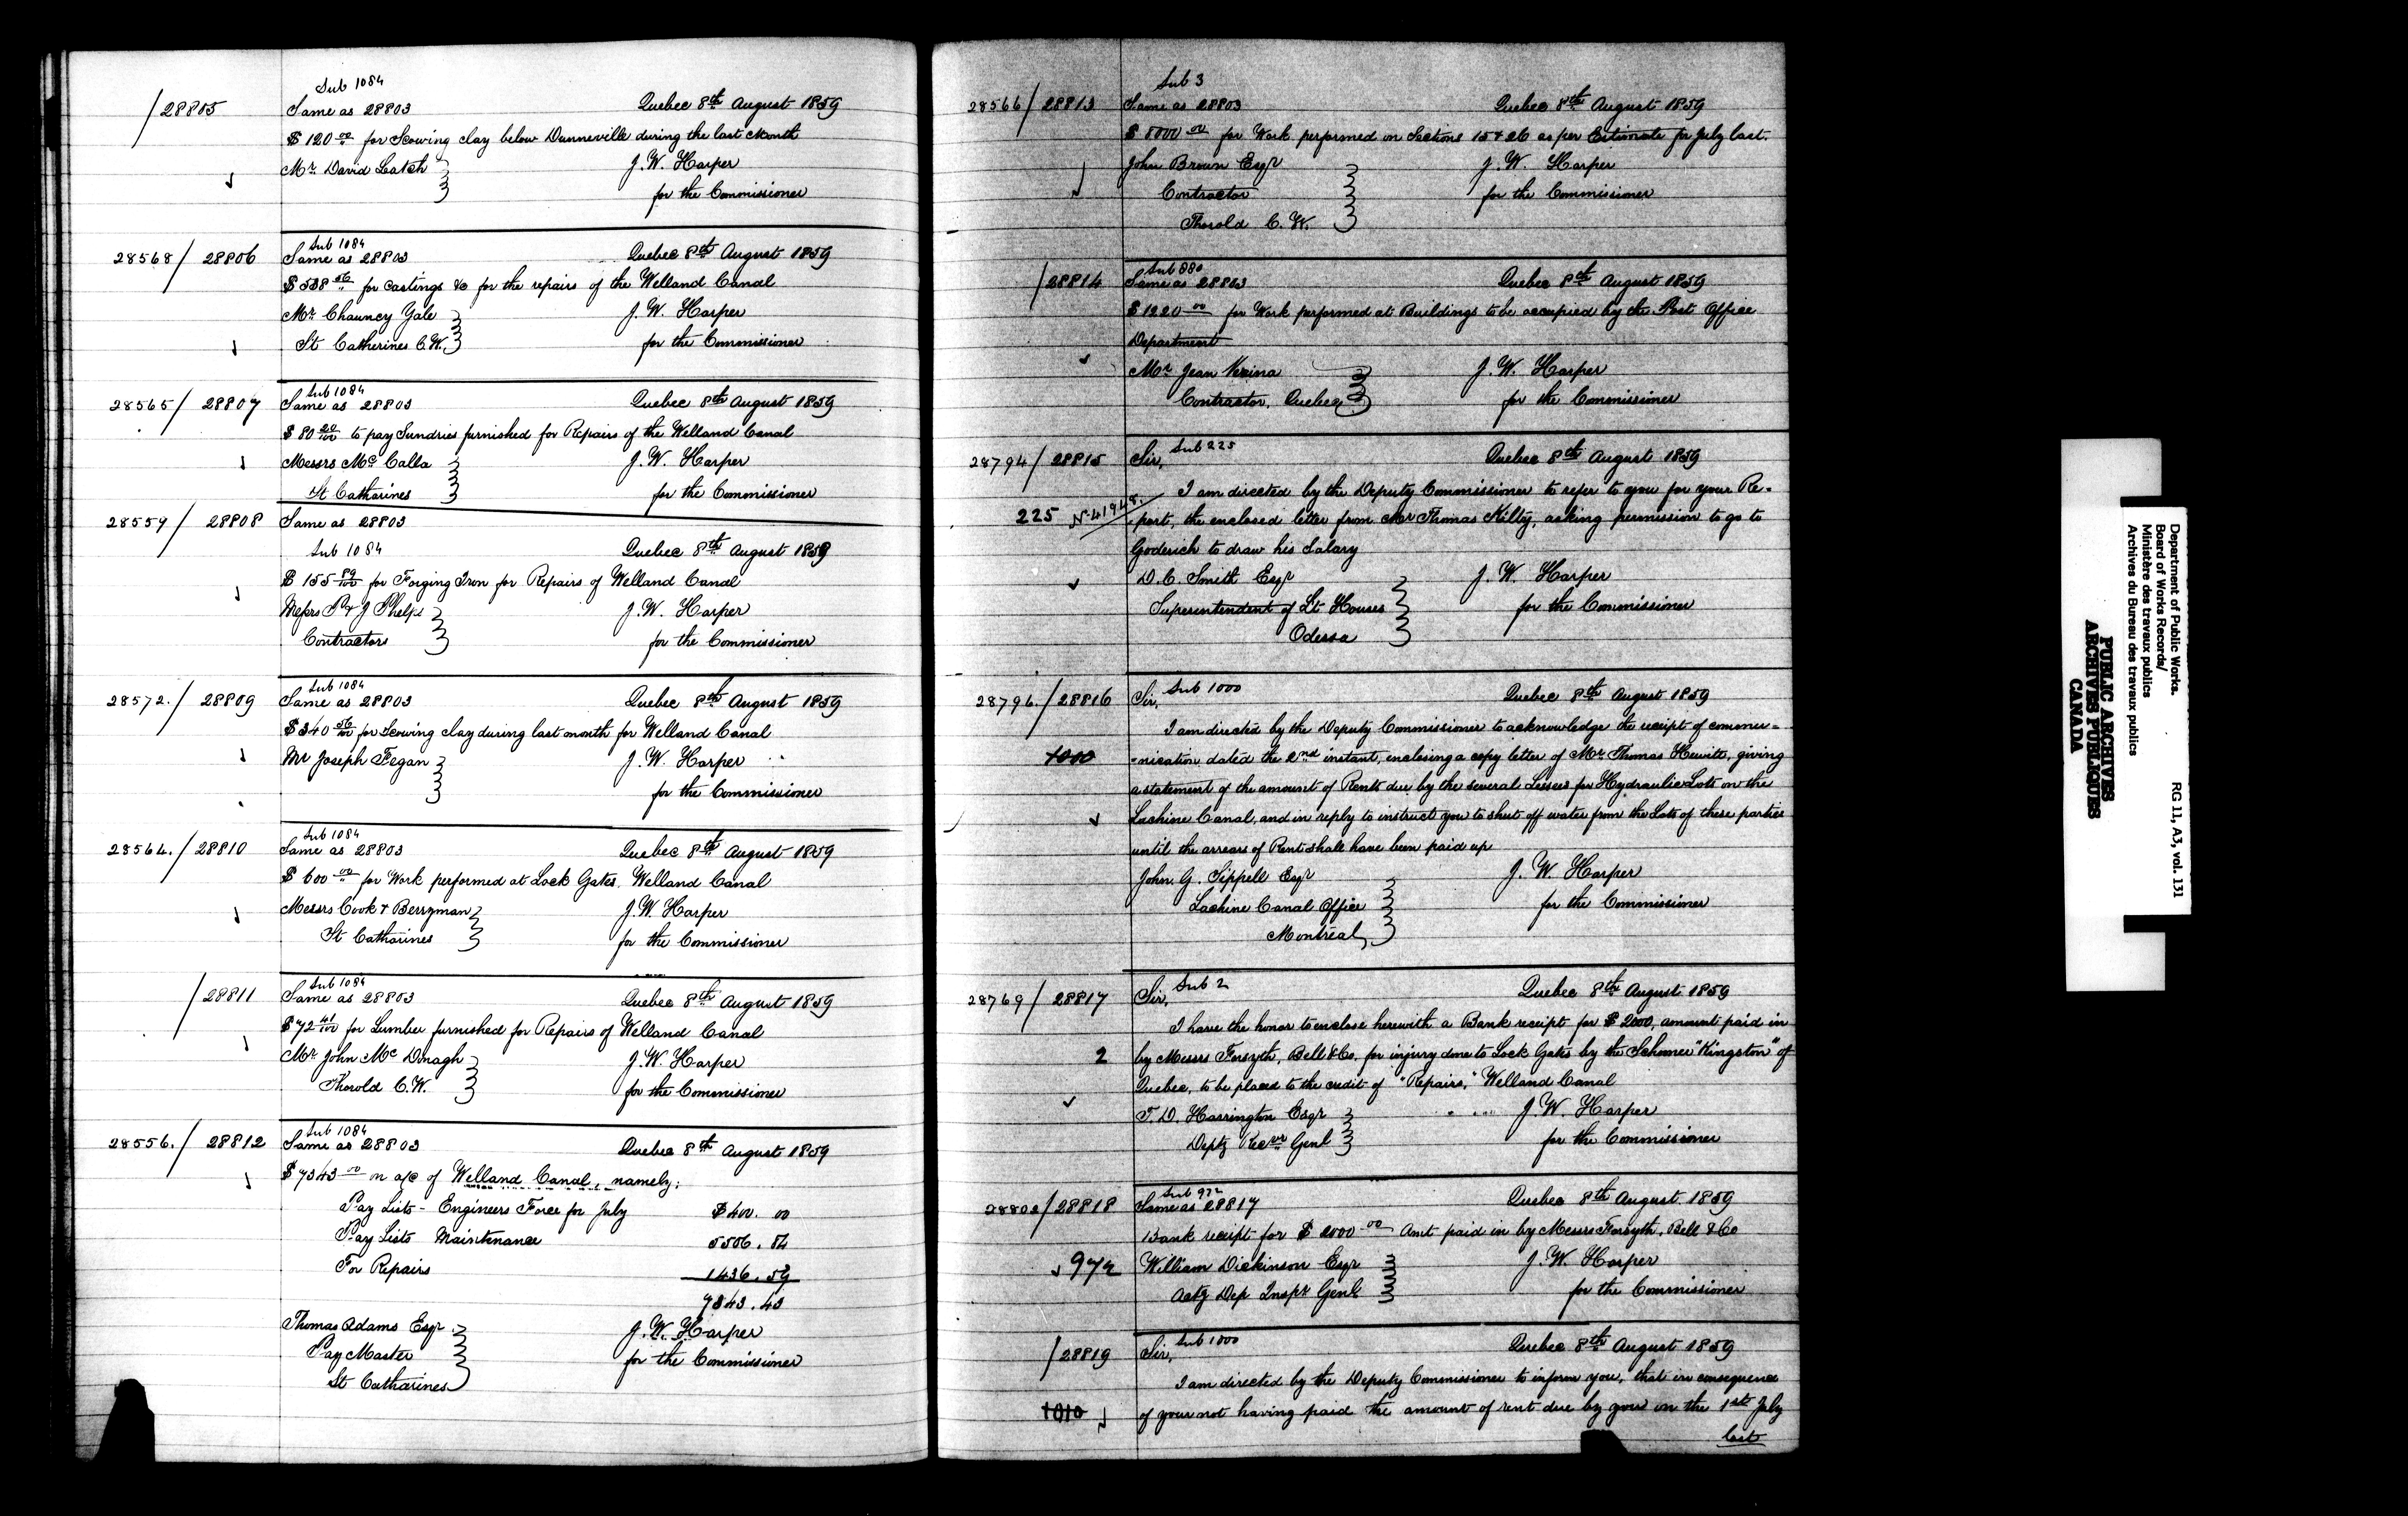 Sub 1084
/28805 Same as 28803 Quebec 8th August 1859
$120 00 for Scowing clay below Dunneville during the last Month
Mr David Latch J. W. Harper
for the Commissioner
28568/ 28806 Sub 1084
Same as 28803 Quebec 8th August 1859
$538 56 for Castings &c for the repairs of the Welland Canal
Mr Chauncy Yale J. W. Harper
St Catherines C.W. for the Commissioner
Sub 1084
28565/ 28807 Same as 28803 Quebec 8th August 1859
$80 20/100 to pay Sundries furnished for Repairs of the Welland Canal
Messrs Mc Calla J. W. Harper
St Catharines for the Commissioner
28559/ 28808 Same as 28803
Sub 1084 Quebec 8th August 1859
$155 89/100 for Forging Iron for Repairs of Welland Canal
Messrs P & J Phelps J. W. Harper
Contractors for the Commissioner
Sub 1084
28572./ 28809 Same as 28803 Quebec 8th August 1859
$340 56/100 for Scowing clay during last month for Welland Canal
Mr Joseph Fegan J. W. Harper
for the Commissioner
Sub 1084
28564./ 28810 Same as 28803 Quebec 8th August 1859
$600 00 for Work performed at Lock Gates, Welland Canal
Messrs Cook & Berryman J. W. Harper
St Catharines for the Commissioner
Sub 1084
/28811 Same as 28803 Quebec 8th August 1859
$72 41/100 for Lumber furnished for Repairs of Welland Canal
Mr John Mc Dnagh J. W. Harper
Thorold C.W. for the Commissioner
Sub 1084
28556./ 28812 Same as 28803 Quebec 8th August 1859
$7343 00 on a/c of Welland Canal, namely;
Pay Lists - Engineers Force for July $400. 00
Pay Lists Maintenance 5506. 84
For Repairs 1436. 59
7343. 43
Thomas Adams Esqr J. W. Harper
Pay Master for the Commissioner
St Catharines
Sub 3
28566/ 28813 Same as 28803 Quebec 8th August 1859
$8000 00 for Work performed on Sections 15 & 26 as per Estimate for July last.
John Brown Esqr J. W. Harper
Contractor for the Commissioner
Thorold C. W.
Sub 880
/28814 Same as 28803 Quebec 8th August 1859
$1220 00 for Work performed at Buildings to be occupied by the Post Office
Department
Mr Jean Vezina J. W. Harper
Contractor, Quebec for the Commissioner
28794/ 28815 Sir, Sub 225 Quebec 8th August 1859
I am directed by the Deputy Commissioner to refer to you for your Re-
225 N. 41948. -port, the enclosed letter from Mr Thomas Kilty, asking permission to go to
Goderich to draw his Salary
D. C. Smith Esqr J. W. Harper
Superintendent of Lt Houses for the Commissioner
Odessa
28796./ 28816 Sir, Sub 1000 Quebec 8th August 1859
I am directed by the Deputy Commissioner to acknowledge the receipt of commu=
1000 =nication dated the 2nd instant, enclosing a copy letter of Mr Thomas Hewitt, giving
a statement of the amount of Rents due by the several Lessees for Hydraulic Lots on the
Lachine Canal, and in reply to instruct you to shut off water from the Lots of these parties
until the arrears of Rent shall have been paid up
John G. Sippell Esqr J. W. Harper
Lachine Canal Office for the Commissioner
Montreal
28769/ 28817 Sir, Sub 2 Quebec 8th August 1859
I have the honor to enclose herewith a Bank receipt for $2000, amount paid in
2 by Messrs Forsyth, Bell & Co. for injury done to Lock Gates by the Schooner "Kingston" of
Quebec, to be placed to the credit of "Repairs," Welland Canal
T. D. Harrington Esqr J. W. Harper
Depty Recvr Genl for the Commissioner
Sub 972
28802/ 28818 Same as 28817 Quebec 8th August 1859
Bank receipt for $2000 00 Amt paid in by Messrs Forsyth, Bell & Co
972 William Dickinson Esqr J. W. Harper
Actg Dep Inspr Genl for the Commissioner
/28819 Sir, Sub 1000 Quebec 8th August 1859
I am directed by the Deputy Commissioner to inform you, that in consequence
1010 of your not having paid the amount of rent due by you on the 1st July
last
Department of Public Works.
Board of Works Records/
Ministère des travaux publics
Archives du Bureau des travaux publics
RG 11, A3, vol. 131
PUBLIC ARCHIVES
ARCHIVES PUBLIQUES
CANADA